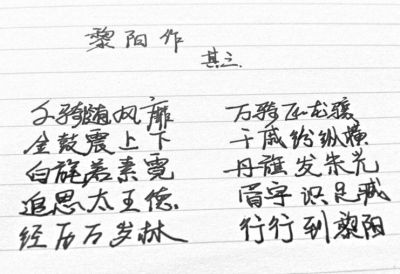 黎阳作
其三
千骑随风靡 万骑正龙骧
金鼓震上下 干戚纷纵横
白旄若素霓 丹旗发朱光
追思太王德 胥宇识足臧
经历万岁林 行行到黎阳